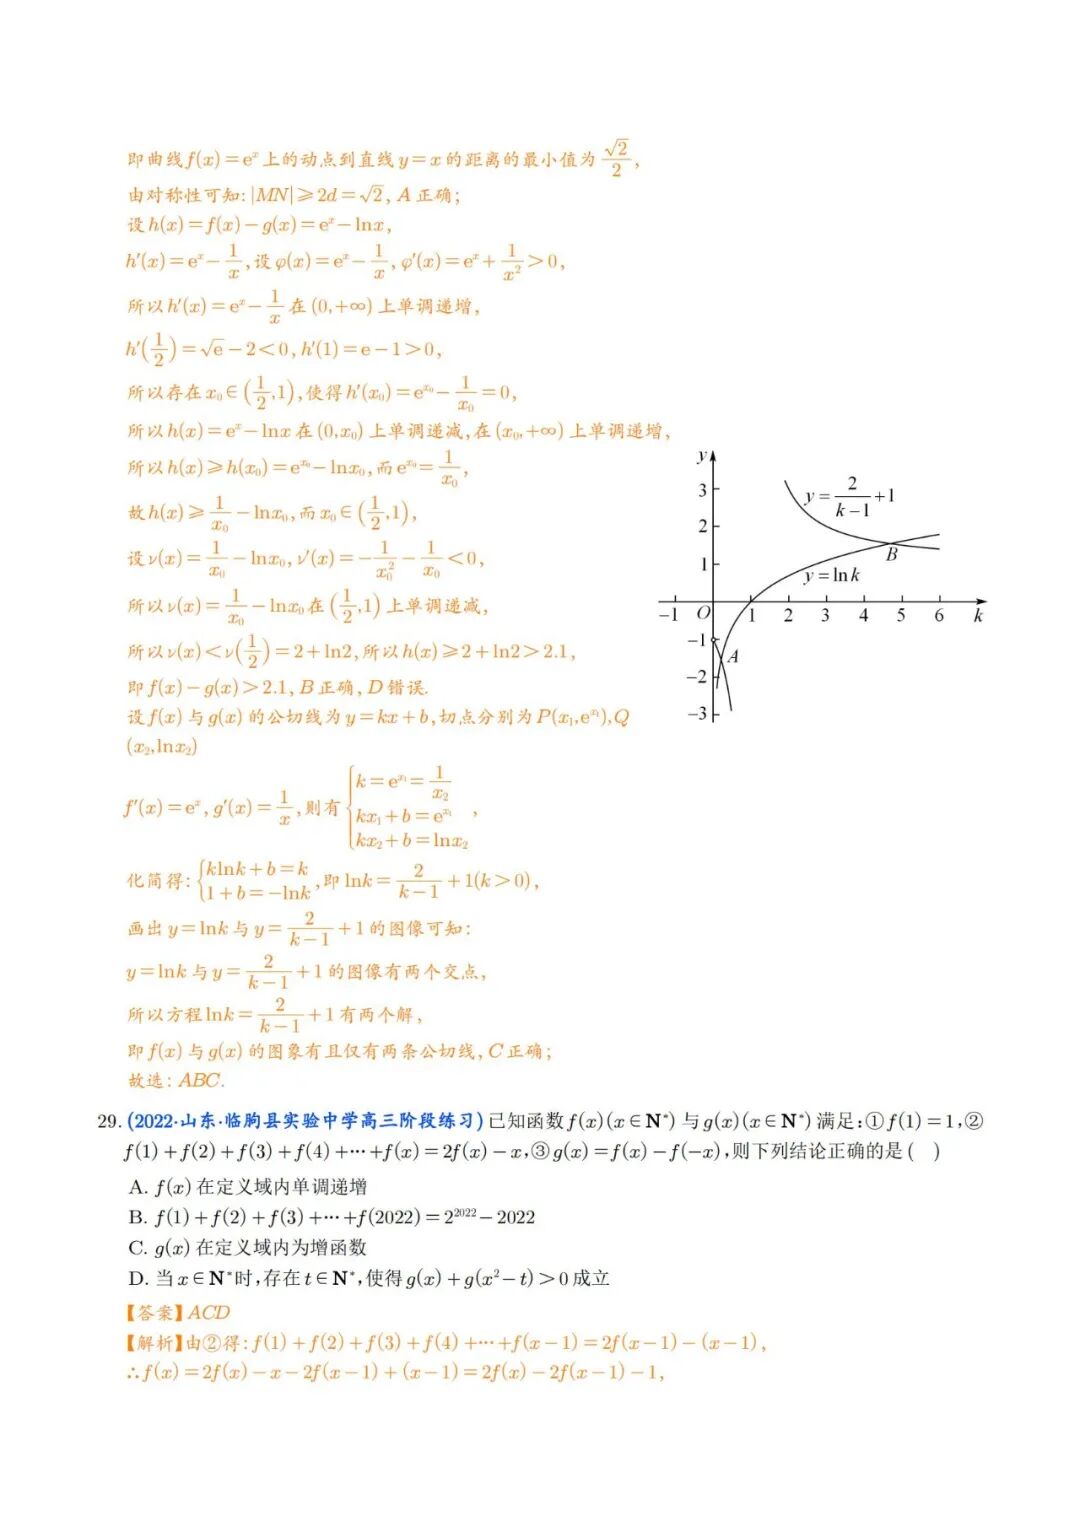 即曲线f(x)=eˣ上的动点到直线y=x的距离的最小值为 √2/2,
由对称性可知:|MN|≥2d=√2, A正确;
设h(x)=f(x)-g(x)=eˣ-lnx,
h′(x)=eˣ-1/x,设φ(x)=eˣ-1/x,φ′(x)=eˣ+1/x²>0,
所以h′(x)=eˣ-1/x在(0,+∞)上单调递增,
h′(1/2)=√e-2<0,h′(1)=e-1>0,
所以存在x₀∈(1/2,1),使得h′(x₀)=e^{x₀}-1/x₀=0,
所以h(x)=eˣ-lnx在(0,x₀)上单调递减,在(x₀,+∞)上单调递增,
所以h(x)≥h(x₀)=e^{x₀}-lnx₀,而e^{x₀}=1/x₀,
故h(x)≥1/x₀-lnx₀,而x₀∈(1/2,1),
设ν(x)=1/x₀-lnx₀,ν′(x)=-1/x₀²-1/x₀<0,
所以ν(x)=1/x₀-lnx₀在(1/2,1)上单调递减,
所以ν(x)<ν(1/2)=2+ln2,所以h(x)≥2+ln2>2.1,
即f(x)-g(x)>2.1,B正确,D错误.
设f(x)与g(x)的公切线为y=kx+b,切点分别为P(x₁,e^{x₁}),Q
(x₂,lnx₂)
y
3
2
1
-1
-2
-3
-1 O 1 2 3 4 5 6 k
y=2/(k-1)+1
y=lnk
B
A
f′(x)=eˣ,g′(x)=1/x,则有{k=e^{x₁}=1/x₂
kx₁+b=e^{x₁}
kx₂+b=lnx₂,
化简得:{klnk+b=k
1+b=-lnk,即lnk=2/(k-1)+1(k>0),
画出y=lnk与y=2/(k-1)+1的图像可知:
y=lnk与y=2/(k-1)+1的图像有两个交点,
所以方程lnk=2/(k-1)+1有两个解,
即f(x)与g(x)的图象有且仅有两条公切线,C正确;
故选:ABC.
29. (2022·山东·临朐县实验中学高三阶段练习)已知函数f(x)(x∈N*)与g(x)(x∈N*)满足:①f(1)=1,②
f(1)+f(2)+f(3)+f(4)+···+f(x)=2f(x)-x,③g(x)=f(x)-f(-x),则下列结论正确的是( )
A. f(x)在定义域内单调递增
B. f(1)+f(2)+f(3)+···+f(2022)=2²⁰²²-2022
C. g(x)在定义域内为增函数
D. 当x∈N*时,存在t∈N*,使得g(x)+g(x²-t)>0成立
【答案】ACD
【解析】由②得:f(1)+f(2)+f(3)+f(4)+···+f(x-1)=2f(x-1)-(x-1),
∴f(x)=2f(x)-x-2f(x-1)+(x-1)=2f(x)-2f(x-1)-1,